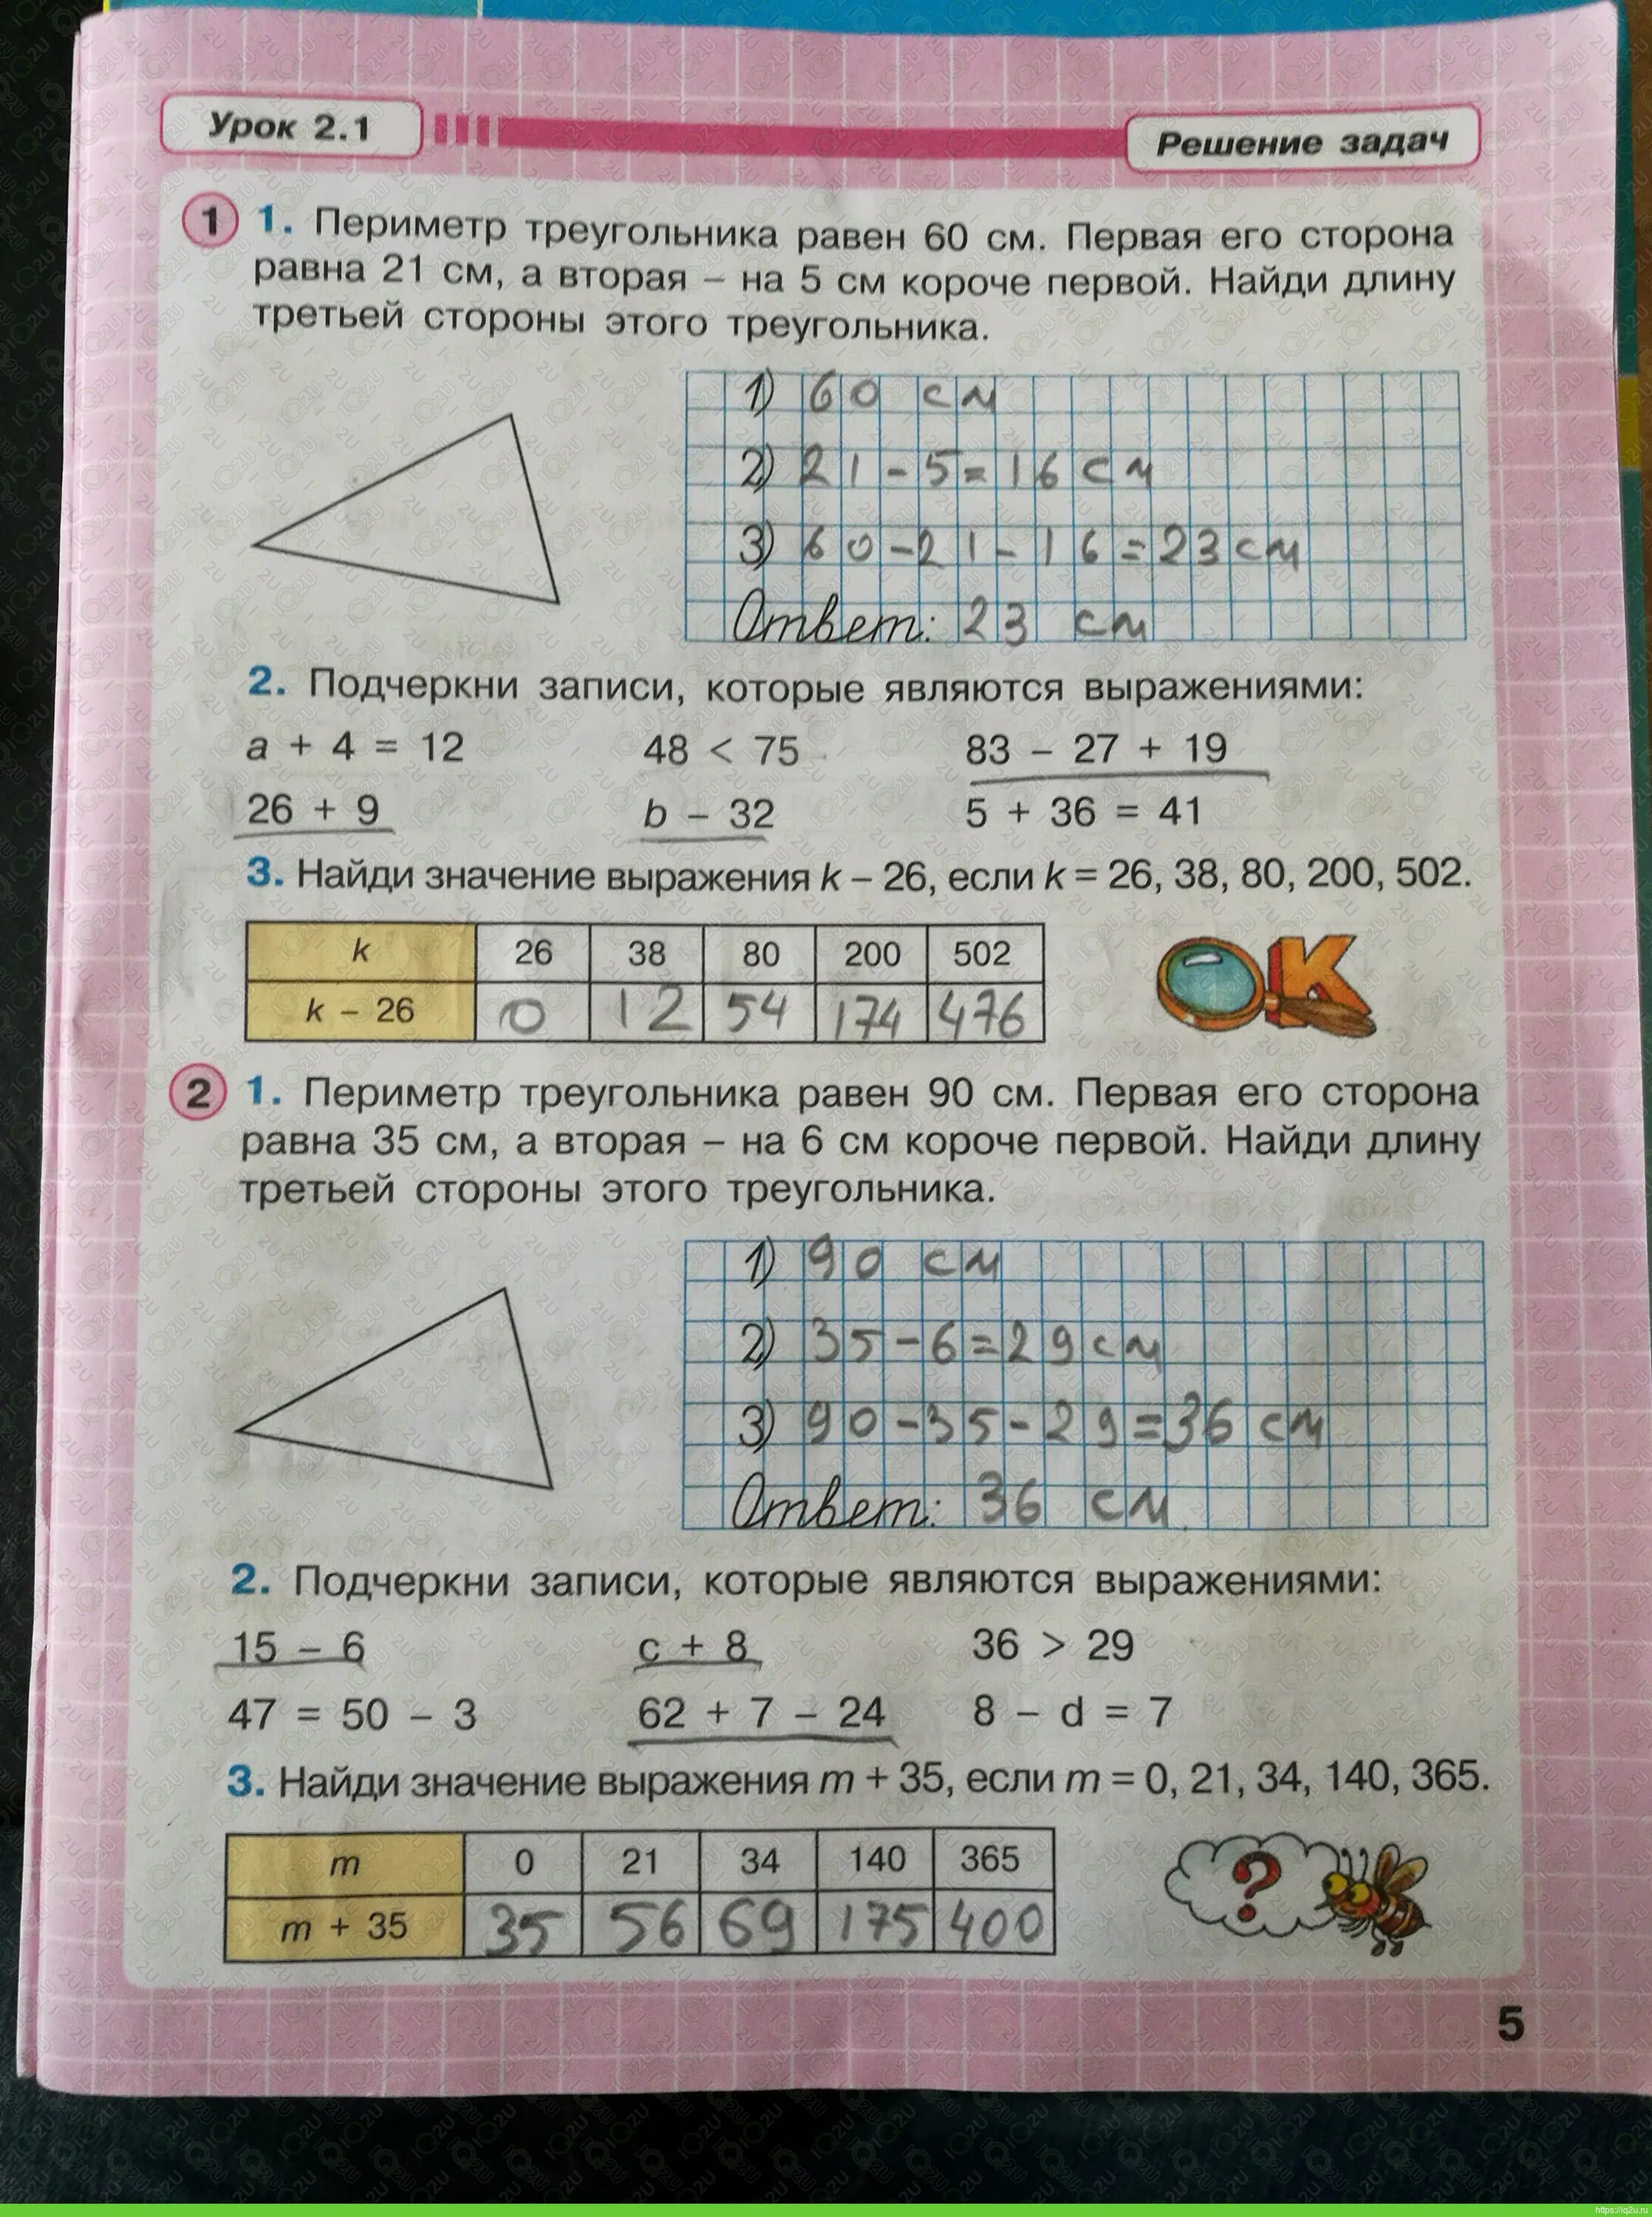 Урок 2.1
Решение задач
1 1. Периметр треугольника равен 60 см. Первая его сторона
равна 21 см, а вторая – на 5 см короче первой. Найди длину
третьей стороны этого треугольника.
1) 60 см
2) 21 - 5 = 16 см
3) 60 - 21 - 16 = 23 см
Ответ: 23 см
2. Подчеркни записи, которые являются выражениями:
a + 4 = 12 48 < 75 83 – 27 + 19
26 + 9 b – 32 5 + 36 = 41
3. Найди значение выражения k – 26, если k = 26, 38, 80, 200, 502.
k 26 38 80 200 502
k – 26 0 12 54 174 476
OK
2 1. Периметр треугольника равен 90 см. Первая его сторона
равна 35 см, а вторая – на 6 см короче первой. Найди длину
третьей стороны этого треугольника.
1) 90 см
2) 35 - 6 = 29 см
3) 90 - 35 - 29 = 36 см
Ответ: 36 см
2. Подчеркни записи, которые являются выражениями:
15 – 6 c + 8 36 > 29
47 = 50 – 3 62 + 7 – 24 8 – d = 7
3. Найди значение выражения m + 35, если m = 0, 21, 34, 140, 365.
m 0 21 34 140 365
m + 35 35 56 69 175 400
?
5
https://iq2u.ru